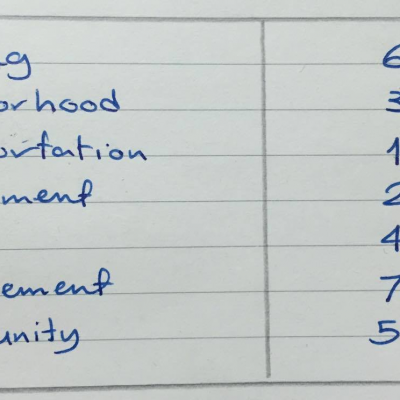 ng 6
orhood 3
ortation 1
ment 2
4
ement 7
unity 5